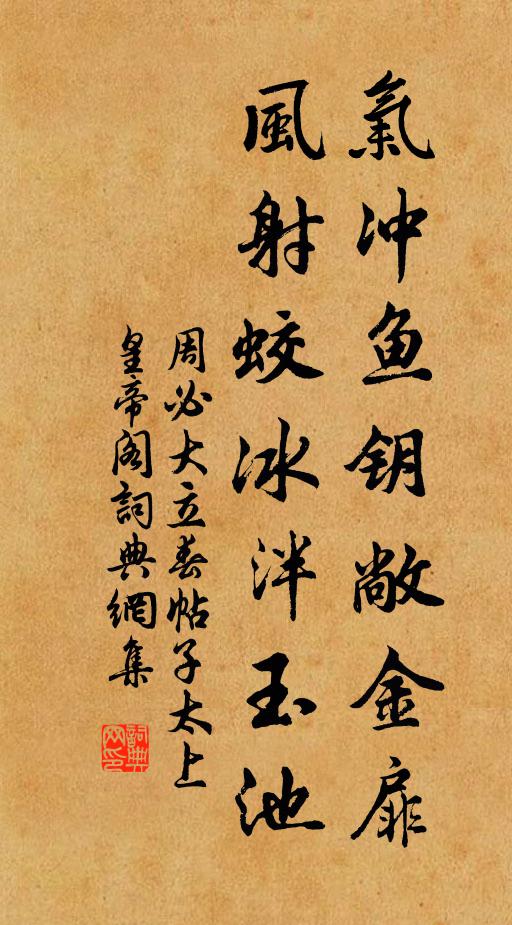 氣冲鱼钥敞金扉
風射蛟冰泮玉池
周必大立春帖子太上
皇帝阁詞典網集
詞典
网印